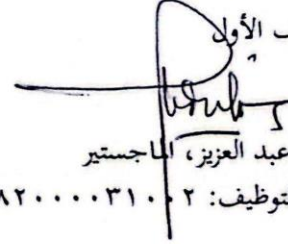 الأول
عبد العزيز، الماجستير
توظيف: ٨٢٠٠٠٠٣١٠٠٢